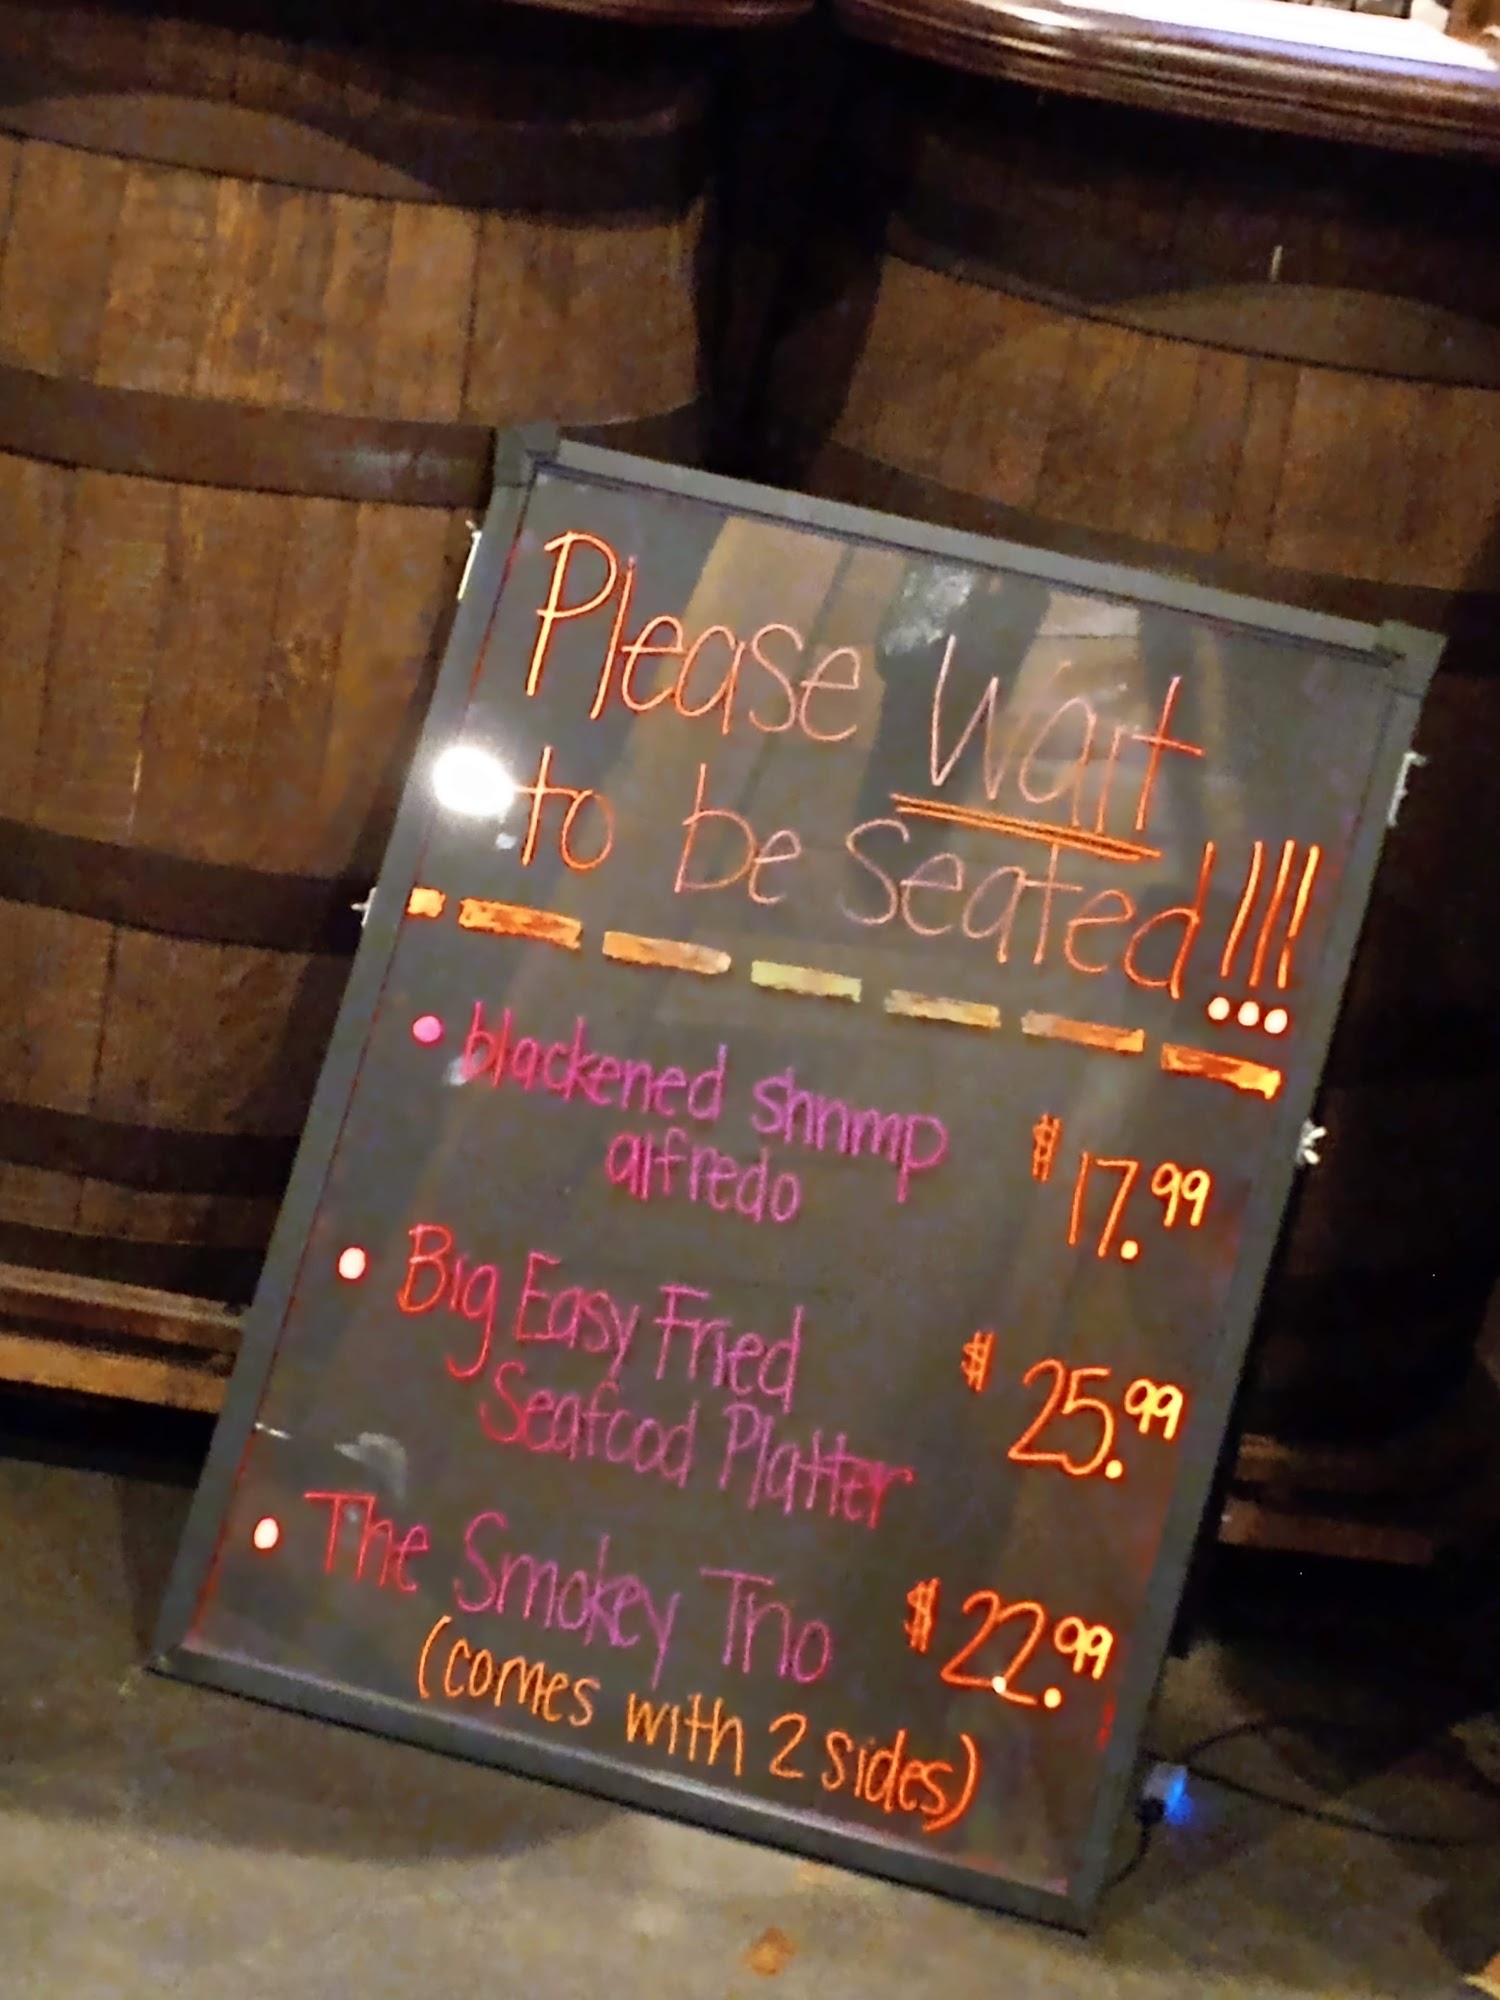 Please Wait
to be Seated!!!
• blackened shrimp
alfredo $17.99
• Big Easy Fried
Seafood Platter $25.99
• The Smokey Trio $22.99
(comes with 2 sides)